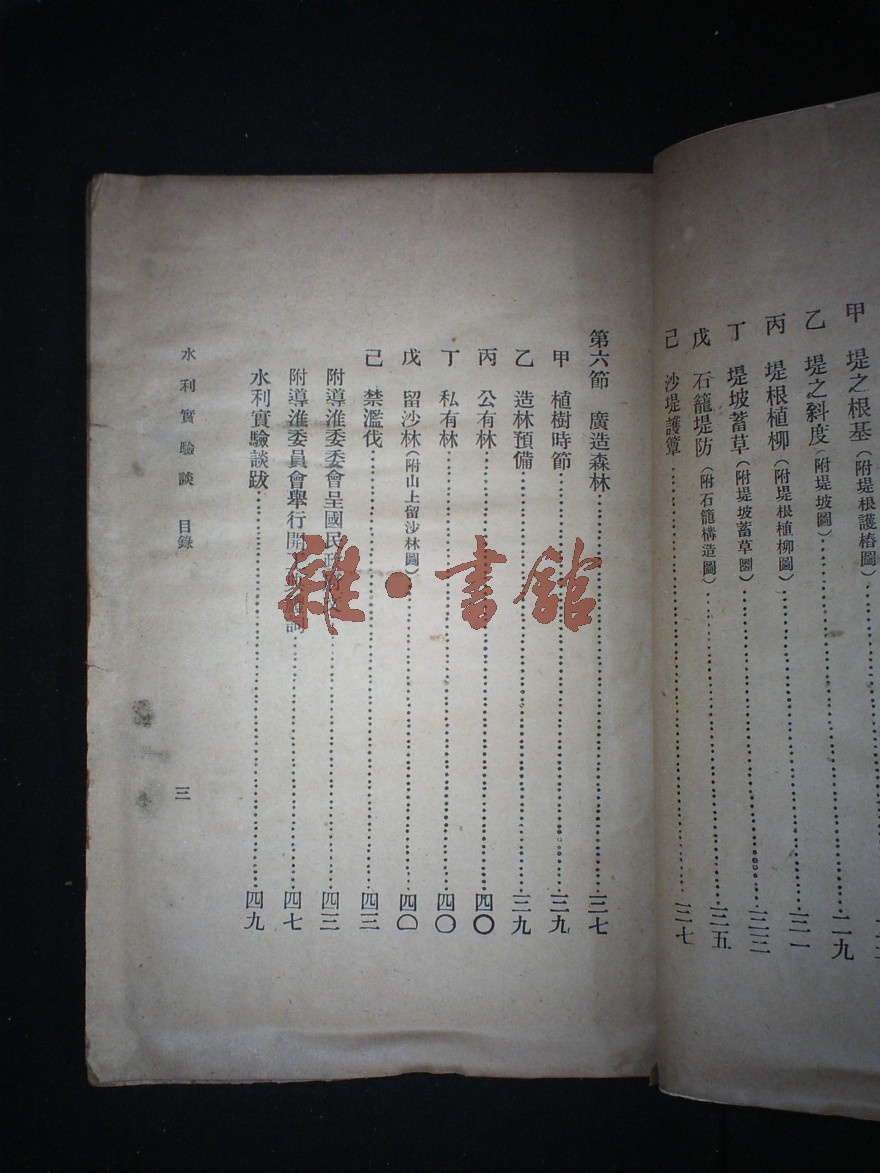 甲 堤之根基(附堤根護樁圖)
乙 堤之斜度(附堤坡圖)…二九
丙 堤根植柳(附堤根植柳圖)…三一
丁 堤坡蓄草(附堤坡蓄草圖)…三三
戊 石籠堤防(附石籠構造圖)…三五
己 沙堤護簟…三七
第六節 廣造森林…三七
甲 植樹時節…三九
乙 造林預備…三九
丙 公有林…四〇
丁 私有林…四〇
戊 留沙林(附山上留沙林圖)…四〇
己 禁濫伐…四三
附導淮委委會呈國民政府文…四三
附導淮委員會舉行開…詞…四七
水利實驗談跋…四九
水利實驗談 目錄
三
雜·書館